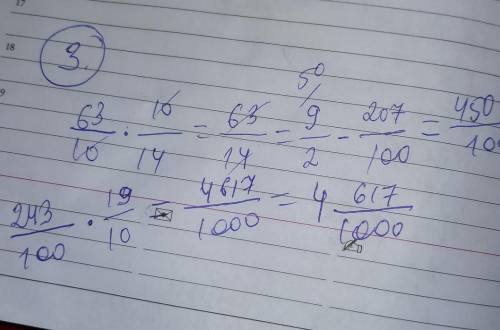 17
18
3.
50
63/10 · 10/14 = 63/14 = 9/2 - 207/100 = 450/10
243/100 · 19/10 = 4617/1000 = 4 617/1000